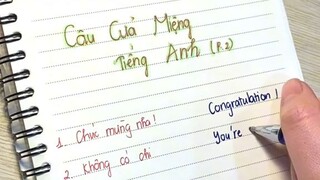 Câu Cửa Miệng
Tiếng Anh (P.2)
1. Chúc mừng nha! Congratulation!
2. Không có chi You're